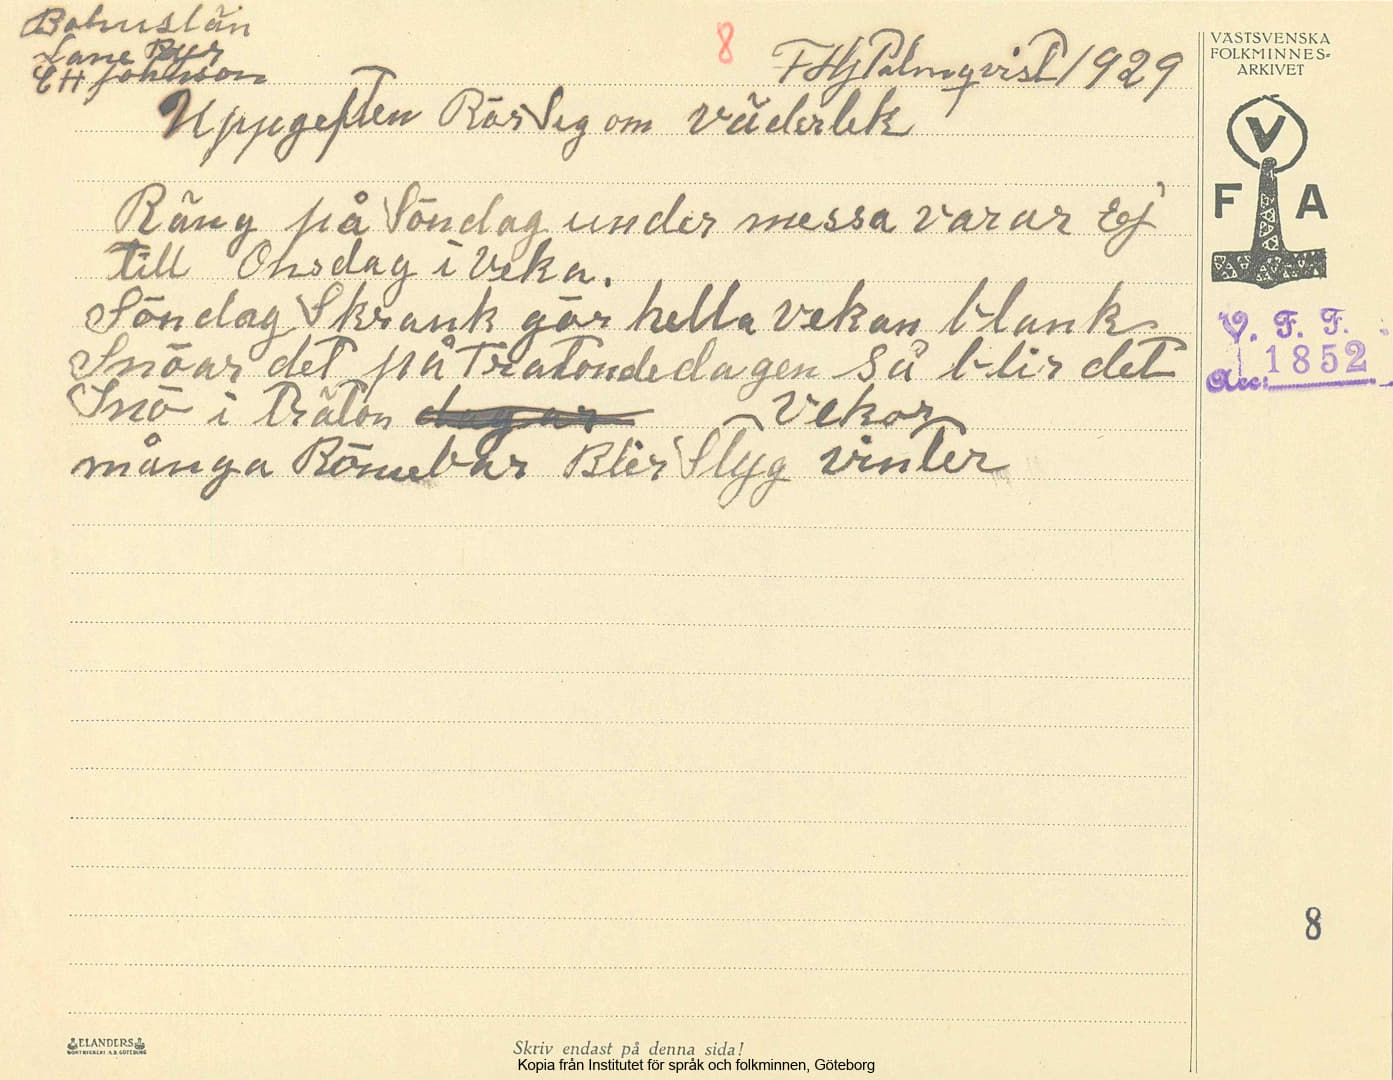 Bohuslän
Lane Ryr
E H Johnson
8
F Hj Palmqvist 1929
Uppgeften Rör Seg om väderlek
Räng på Söndag under messa varar Ej
till Onsdag i veka.
Söndag Skrank gör hella vekan blank
Snöar det på Tratondedagen Så blir det
Snö i träton dagar vekor
många Rönnebär Blir Styg vinter
VÄSTSVENSKA
FOLKMINNES-
ARKIVET
V
F A
V. F. F.
Acc: 1852
8
ELANDERS
BOKTRYCKERI A.B. GÖTEBORG
Skriv endast på denna sida!
Kopia från Institutet för språk och folkminnen, Göteborg